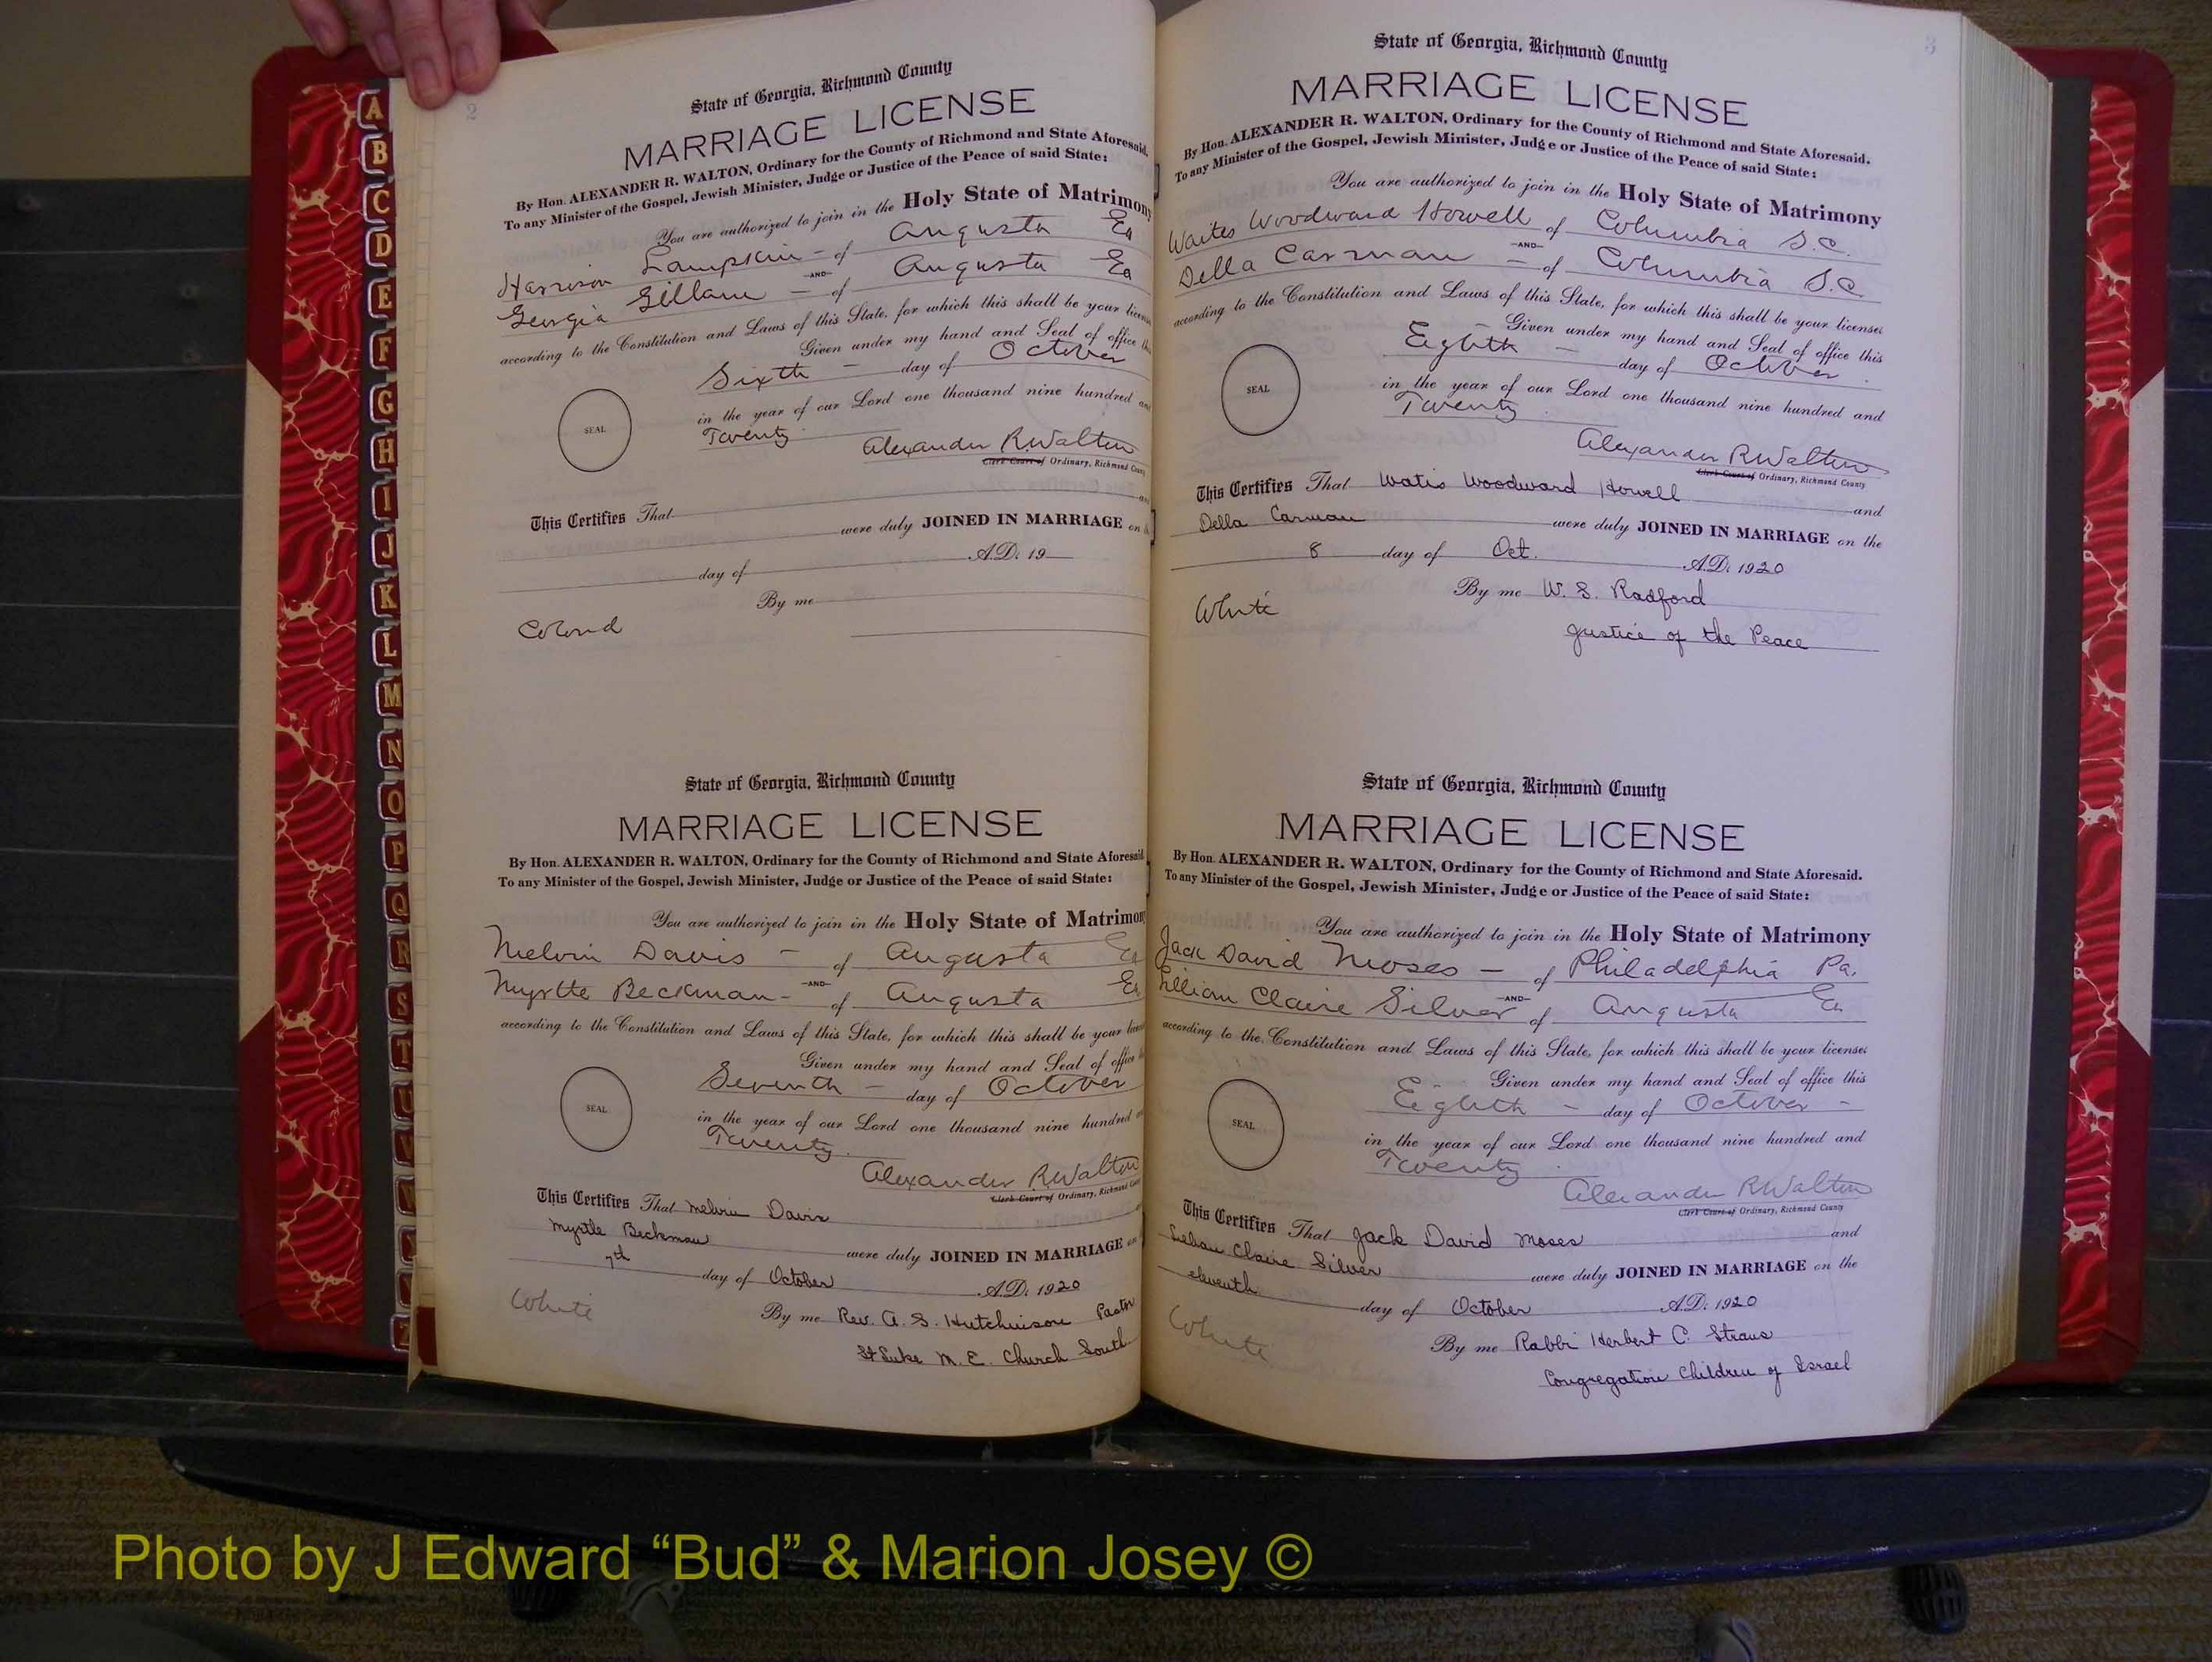 2
State of Georgia, Richmond County
MARRIAGE LICENSE
By Hon. ALEXANDER R. WALTON, Ordinary for the County of Richmond and State Aforesaid.
To any Minister of the Gospel, Jewish Minister, Judge or Justice of the Peace of said State:
You are authorized to join in the Holy State of Matrimony
Harrison Lampkin - of Augusta Ga
-AND-
Georgia Gillam - of Augusta Ga
according to the Constitution and Laws of this State, for which this shall be your license
Given under my hand and Seal of office this
Sixth - day of October
in the year of our Lord one thousand nine hundred and
Twenty
SEAL
Alexander R Walton
Clerk Court of Ordinary, Richmond County
This Certifies That
were duly JOINED IN MARRIAGE on
day of A.D. 19
By me
Colored
State of Georgia, Richmond County
MARRIAGE LICENSE
By Hon. ALEXANDER R. WALTON, Ordinary for the County of Richmond and State Aforesaid
To any Minister of the Gospel, Jewish Minister, Judge or Justice of the Peace of said State:
You are authorized to join in the Holy State of Matrimony
Melvin Davis - of Augusta Ga
-AND-
Myrtle Beckman - of Augusta Ga
according to the Constitution and Laws of this State, for which this shall be your license
Given under my hand and Seal of office
Seventh - day of October
in the year of our Lord one thousand nine hundred
Twenty.
SEAL
Alexander R Walton
Clerk Court of Ordinary, Richmond County
This Certifies That Melvin Davis
Myrtle Beckman were duly JOINED IN MARRIAGE on
7th day of October A.D. 1920
White
By me Rev. A. S. Hutchinson Pastor
St Luke M. E. Church South
3
State of Georgia, Richmond County
MARRIAGE LICENSE
By Hon. ALEXANDER R. WALTON, Ordinary for the County of Richmond and State Aforesaid.
To any Minister of the Gospel, Jewish Minister, Judge or Justice of the Peace of said State:
You are authorized to join in the Holy State of Matrimony
Waites Woodward Howell of Columbia S.C.
-AND-
Della Carman - of Columbia S.C.
according to the Constitution and Laws of this State, for which this shall be your license
Given under my hand and Seal of office this
Eighth - day of October
in the year of our Lord one thousand nine hundred and
Twenty.
SEAL
Alexander R Walton
Clerk Court of Ordinary, Richmond County
This Certifies That Watis Woodward Howell and
Della Carman were duly JOINED IN MARRIAGE on the
8 day of Oct. A.D. 1920
White
By me W. S. Radford
Justice of the Peace
State of Georgia, Richmond County
MARRIAGE LICENSE
By Hon. ALEXANDER R. WALTON, Ordinary for the County of Richmond and State Aforesaid.
To any Minister of the Gospel, Jewish Minister, Judge or Justice of the Peace of said State:
You are authorized to join in the Holy State of Matrimony
Jack David Moses - of Philadelphia Pa.
-AND-
Lillian Claire Silver of Augusta Ga
according to the Constitution and Laws of this State, for which this shall be your license
Given under my hand and Seal of office this
Eighth - day of October -
in the year of our Lord one thousand nine hundred and
Twenty.
SEAL
Alexander R Walton
Clerk Court of Ordinary, Richmond County
This Certifies That Jack David Moses and
Lilian Claire Silver were duly JOINED IN MARRIAGE on the
eleventh day of October A.D. 1920
White
By me Rabbi Herbert C. Straus
Congregation Children of Israel
A
B
C
D
E
F
G
H
I
J
K
L
M
N
O
P
Q
R
S
T
U
Photo by J Edward “Bud” & Marion Josey ©